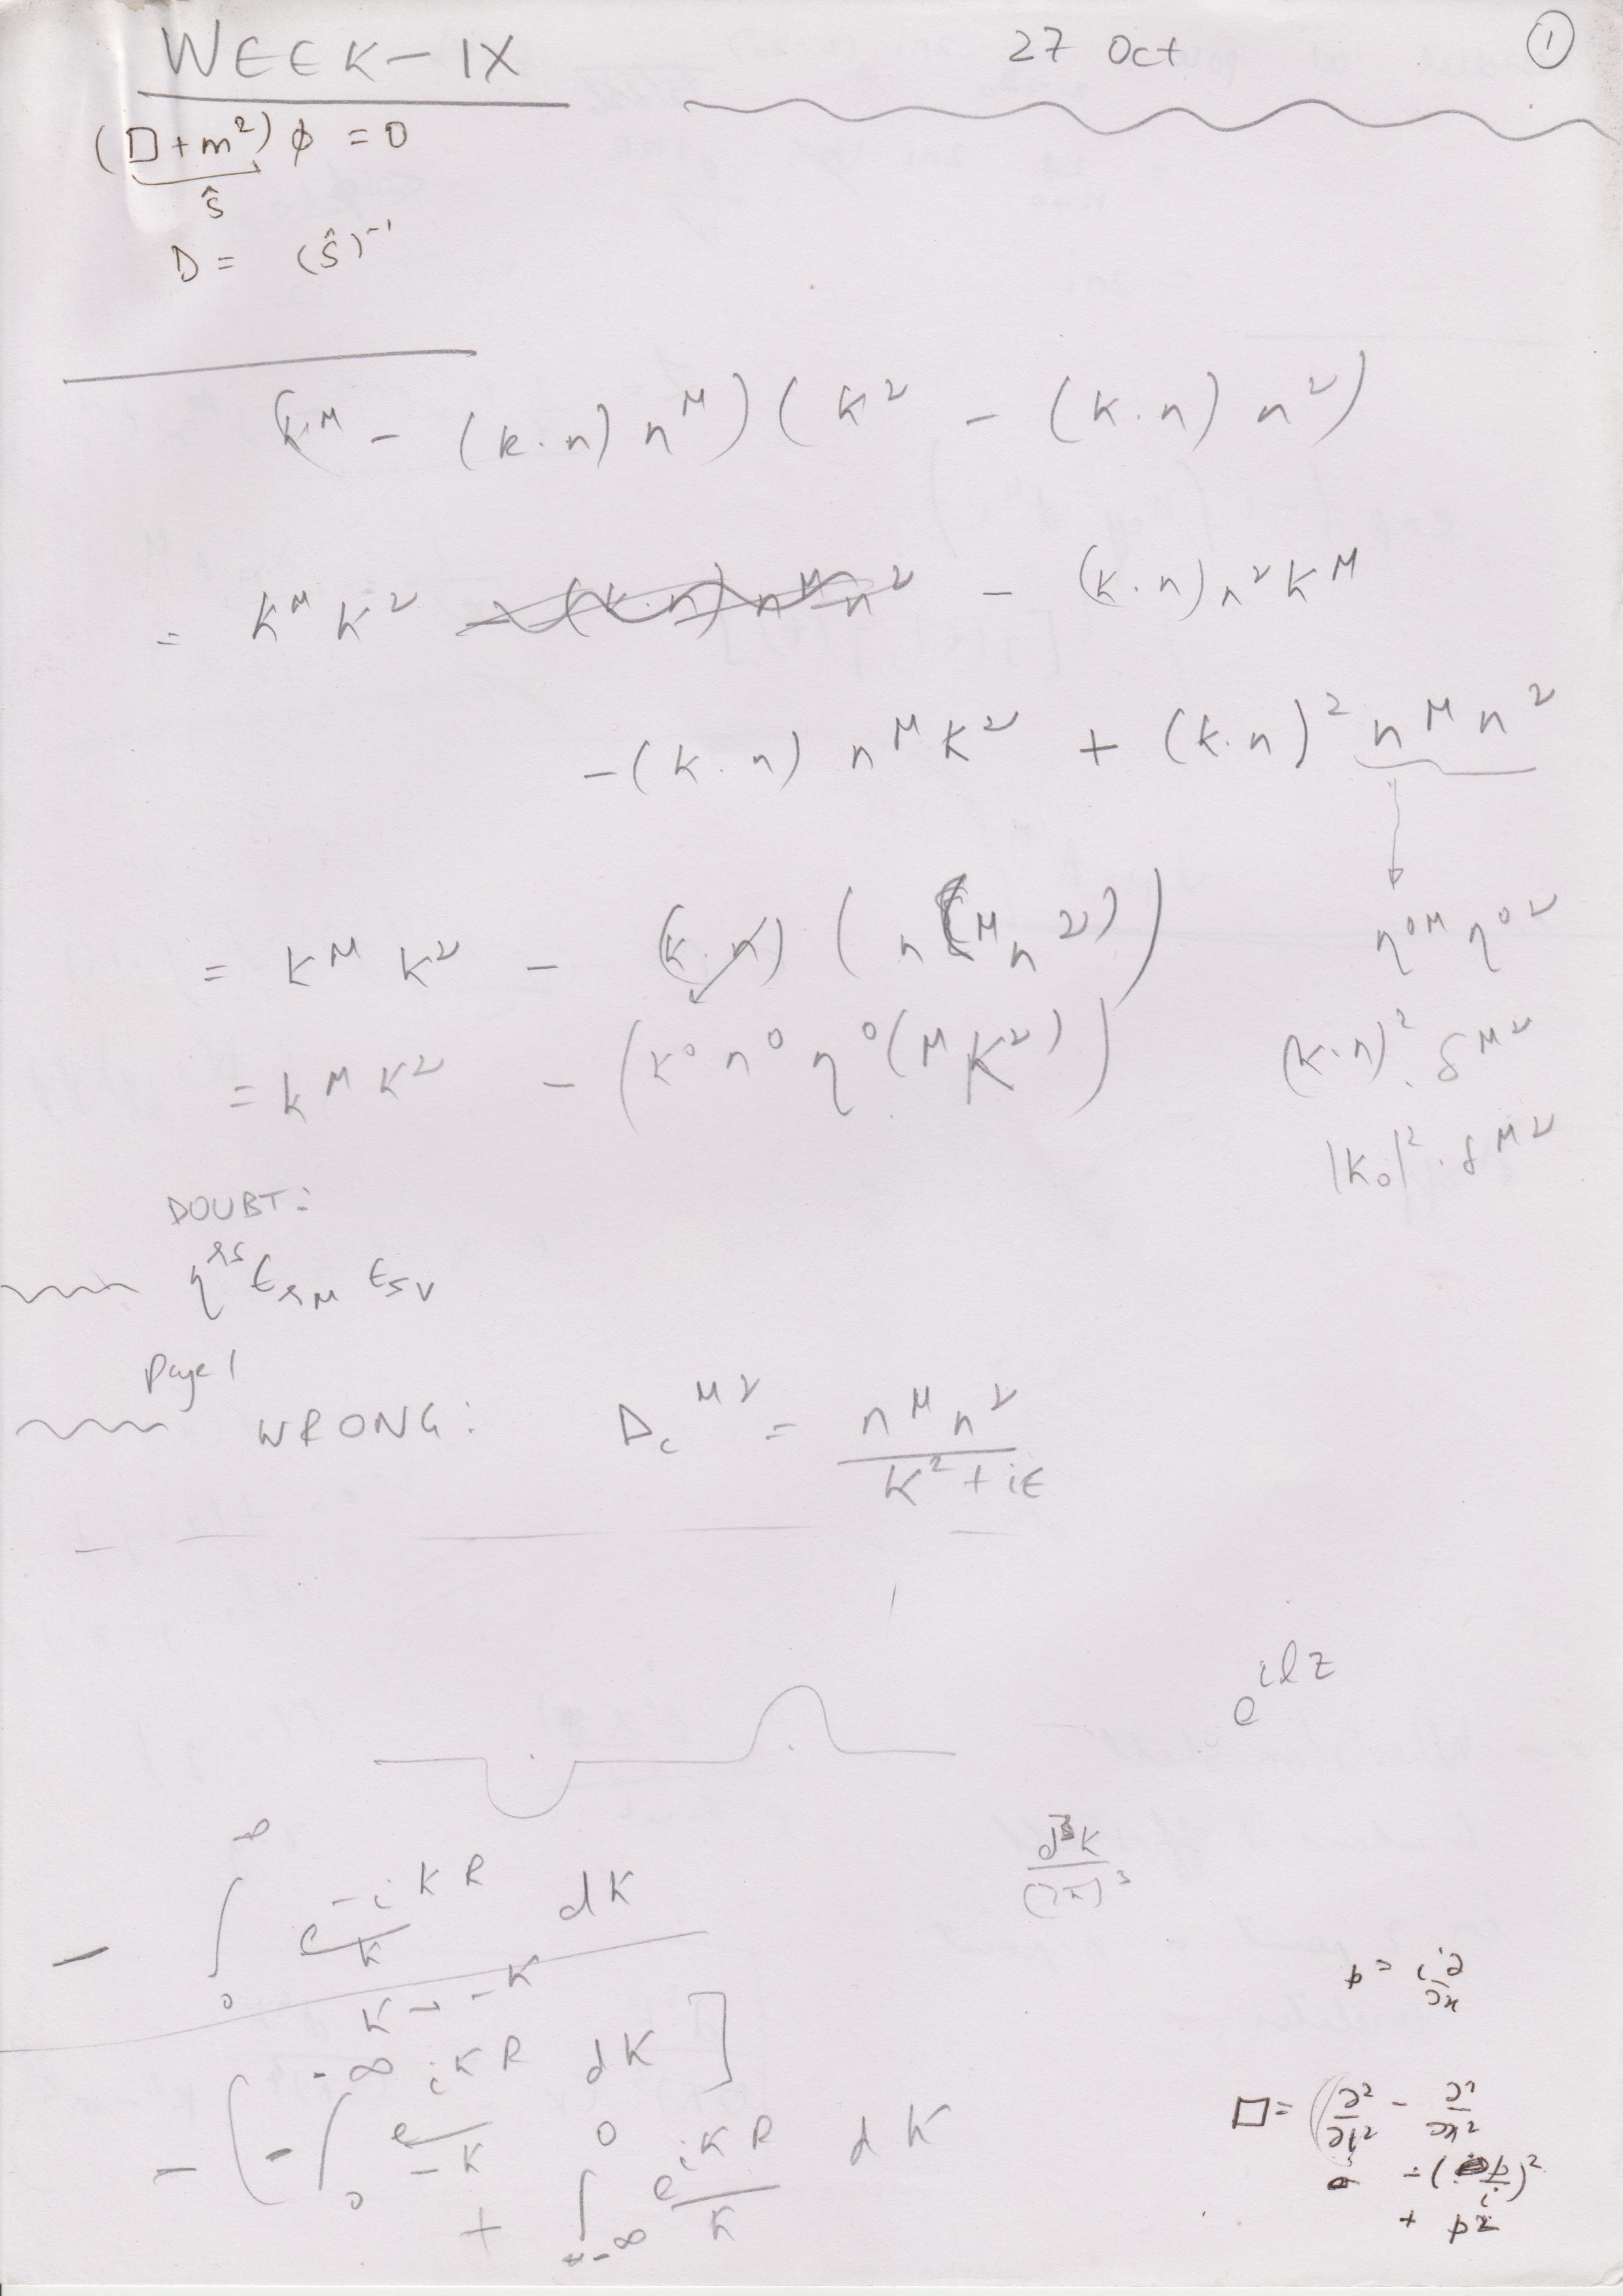 WEEK-IX 27 Oct 1
(□+m²) ϕ = 0
ŝ
D = (ŝ)⁻¹
(k^μ - (k.n) n^μ) (k^ν - (k.n) n^ν)
= k^μ k^ν - (k.n) n^μ n^ν - (k.n) n^ν k^μ
-(k.n) n^μ k^ν + (k.n)² n^μ n^ν
η^{0μ} η^{0ν}
= k^μ k^ν - (k.n) (n^{(μ} n^{ν)})
= k^μ k^ν - (k⁰ n⁰ η^{0(μ} k^{ν)})
(k.n)² . δ^{μν}
|k₀|² . δ^{μν}
DOUBT:
η^{rs} ε_{rμ} ε_{sν}
Page 1
WRONG: D_c^{μν} = n^μ n^ν / k² + iε
e^{ilz}
- ∫₀^∞ e^{-ikR} / k dk
d³k / (2π)³
k → -k
- ( - ∫₀^{-∞} e^{ikR} / -k dk ]
+ ∫_{-∞}^0 e^{ikR} / k dk
p = i∂ / ∂x
□ = (∂² / ∂t² - ∂² / ∂x²
- (p / i)²
+ p²